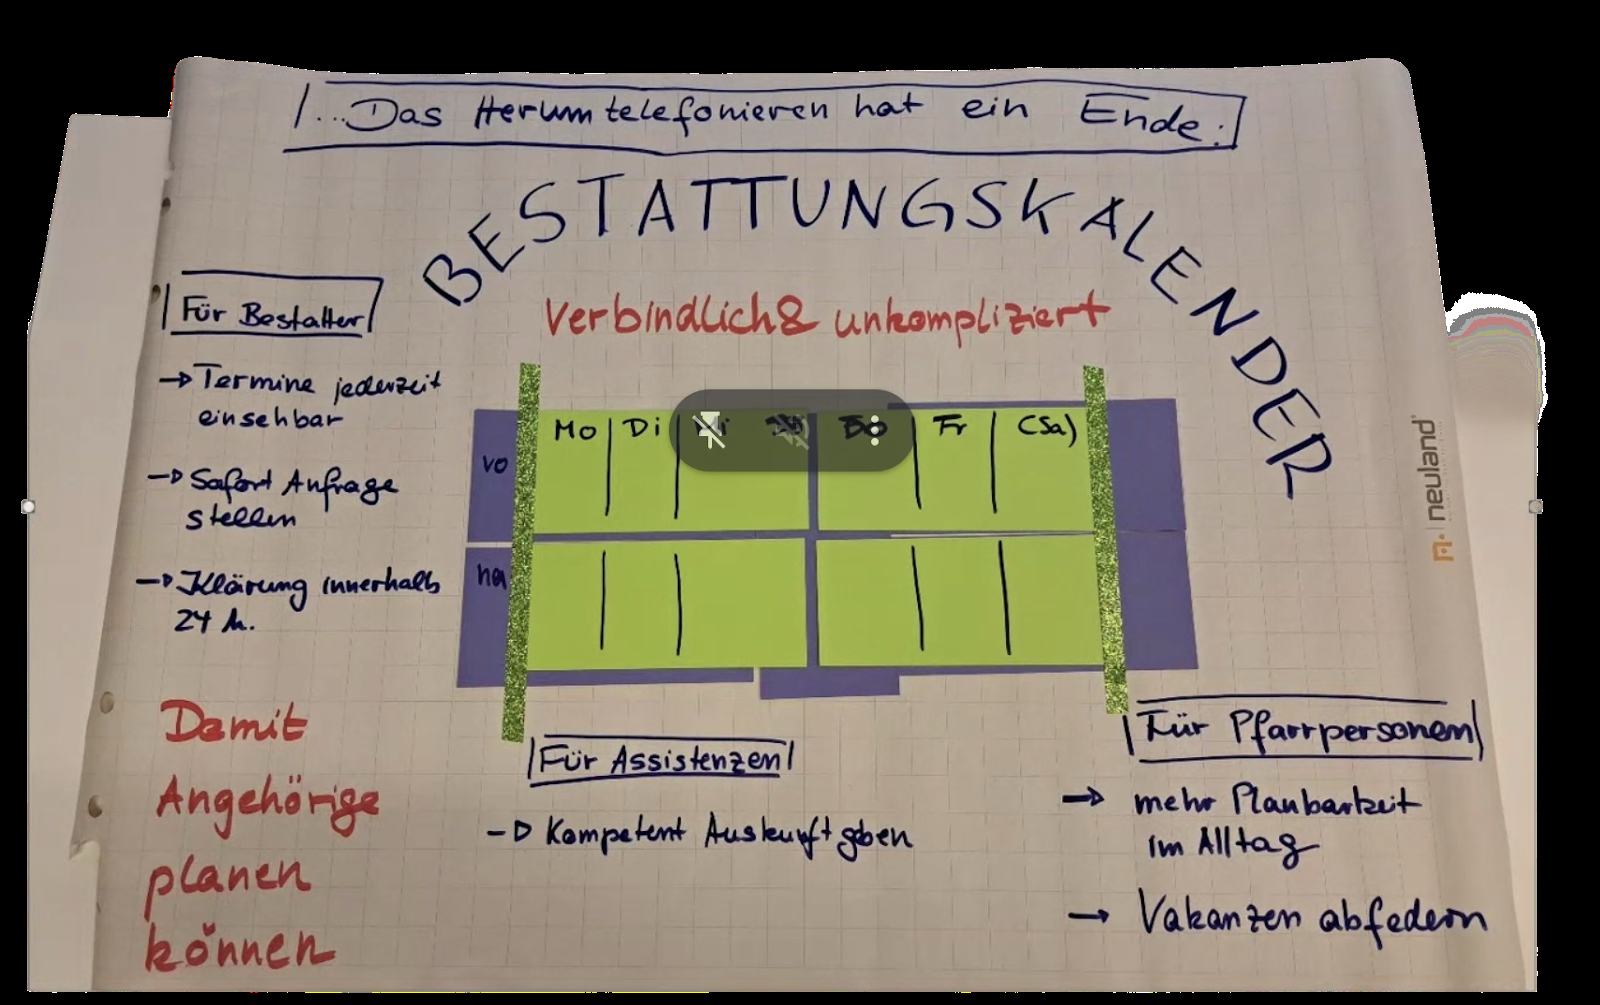 ...Das Herumtelefonieren hat ein Ende.
BESTATTUNGSKALENDER
Verbindlich & unkompliziert
Für Bestatter
→ Termine jederzeit
einsehbar
→ Sofort Anfrage
stellen
→ Klärung innerhalb
24 h.
Damit
Angehörige
planen
können
Mo Di Fr (Sa)
vo
na
Für Assistenzen
→ Kompetent Auskunft geben
Für Pfarrpersonen
→ mehr Planbarkeit
im Alltag
→ Vakanzen abfedern
neuland